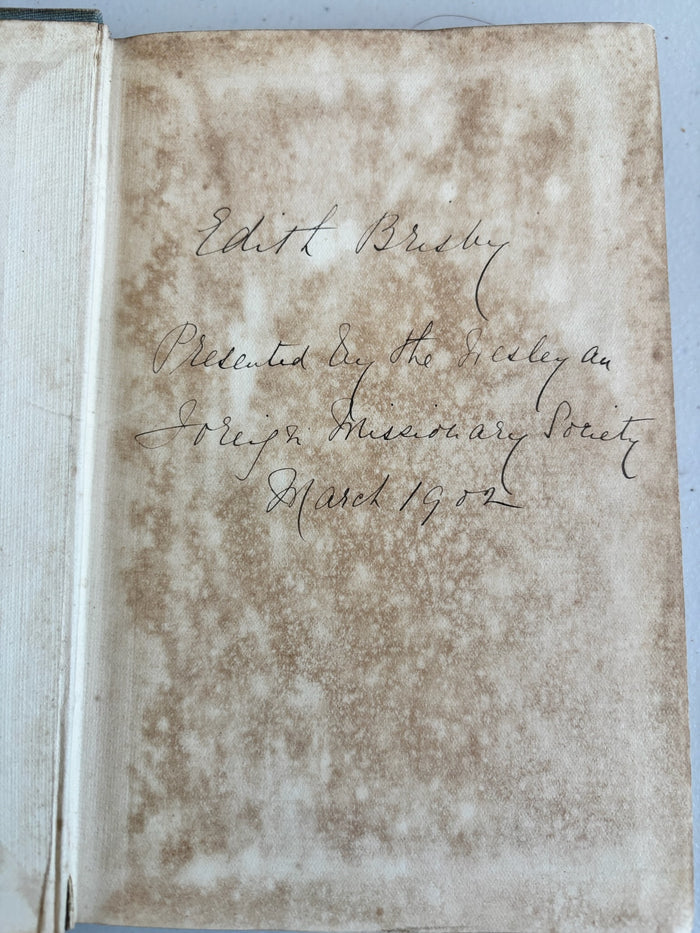 Edith Brisby
Presented by the Wesleyan
Foreign Missionary Society
March 1902